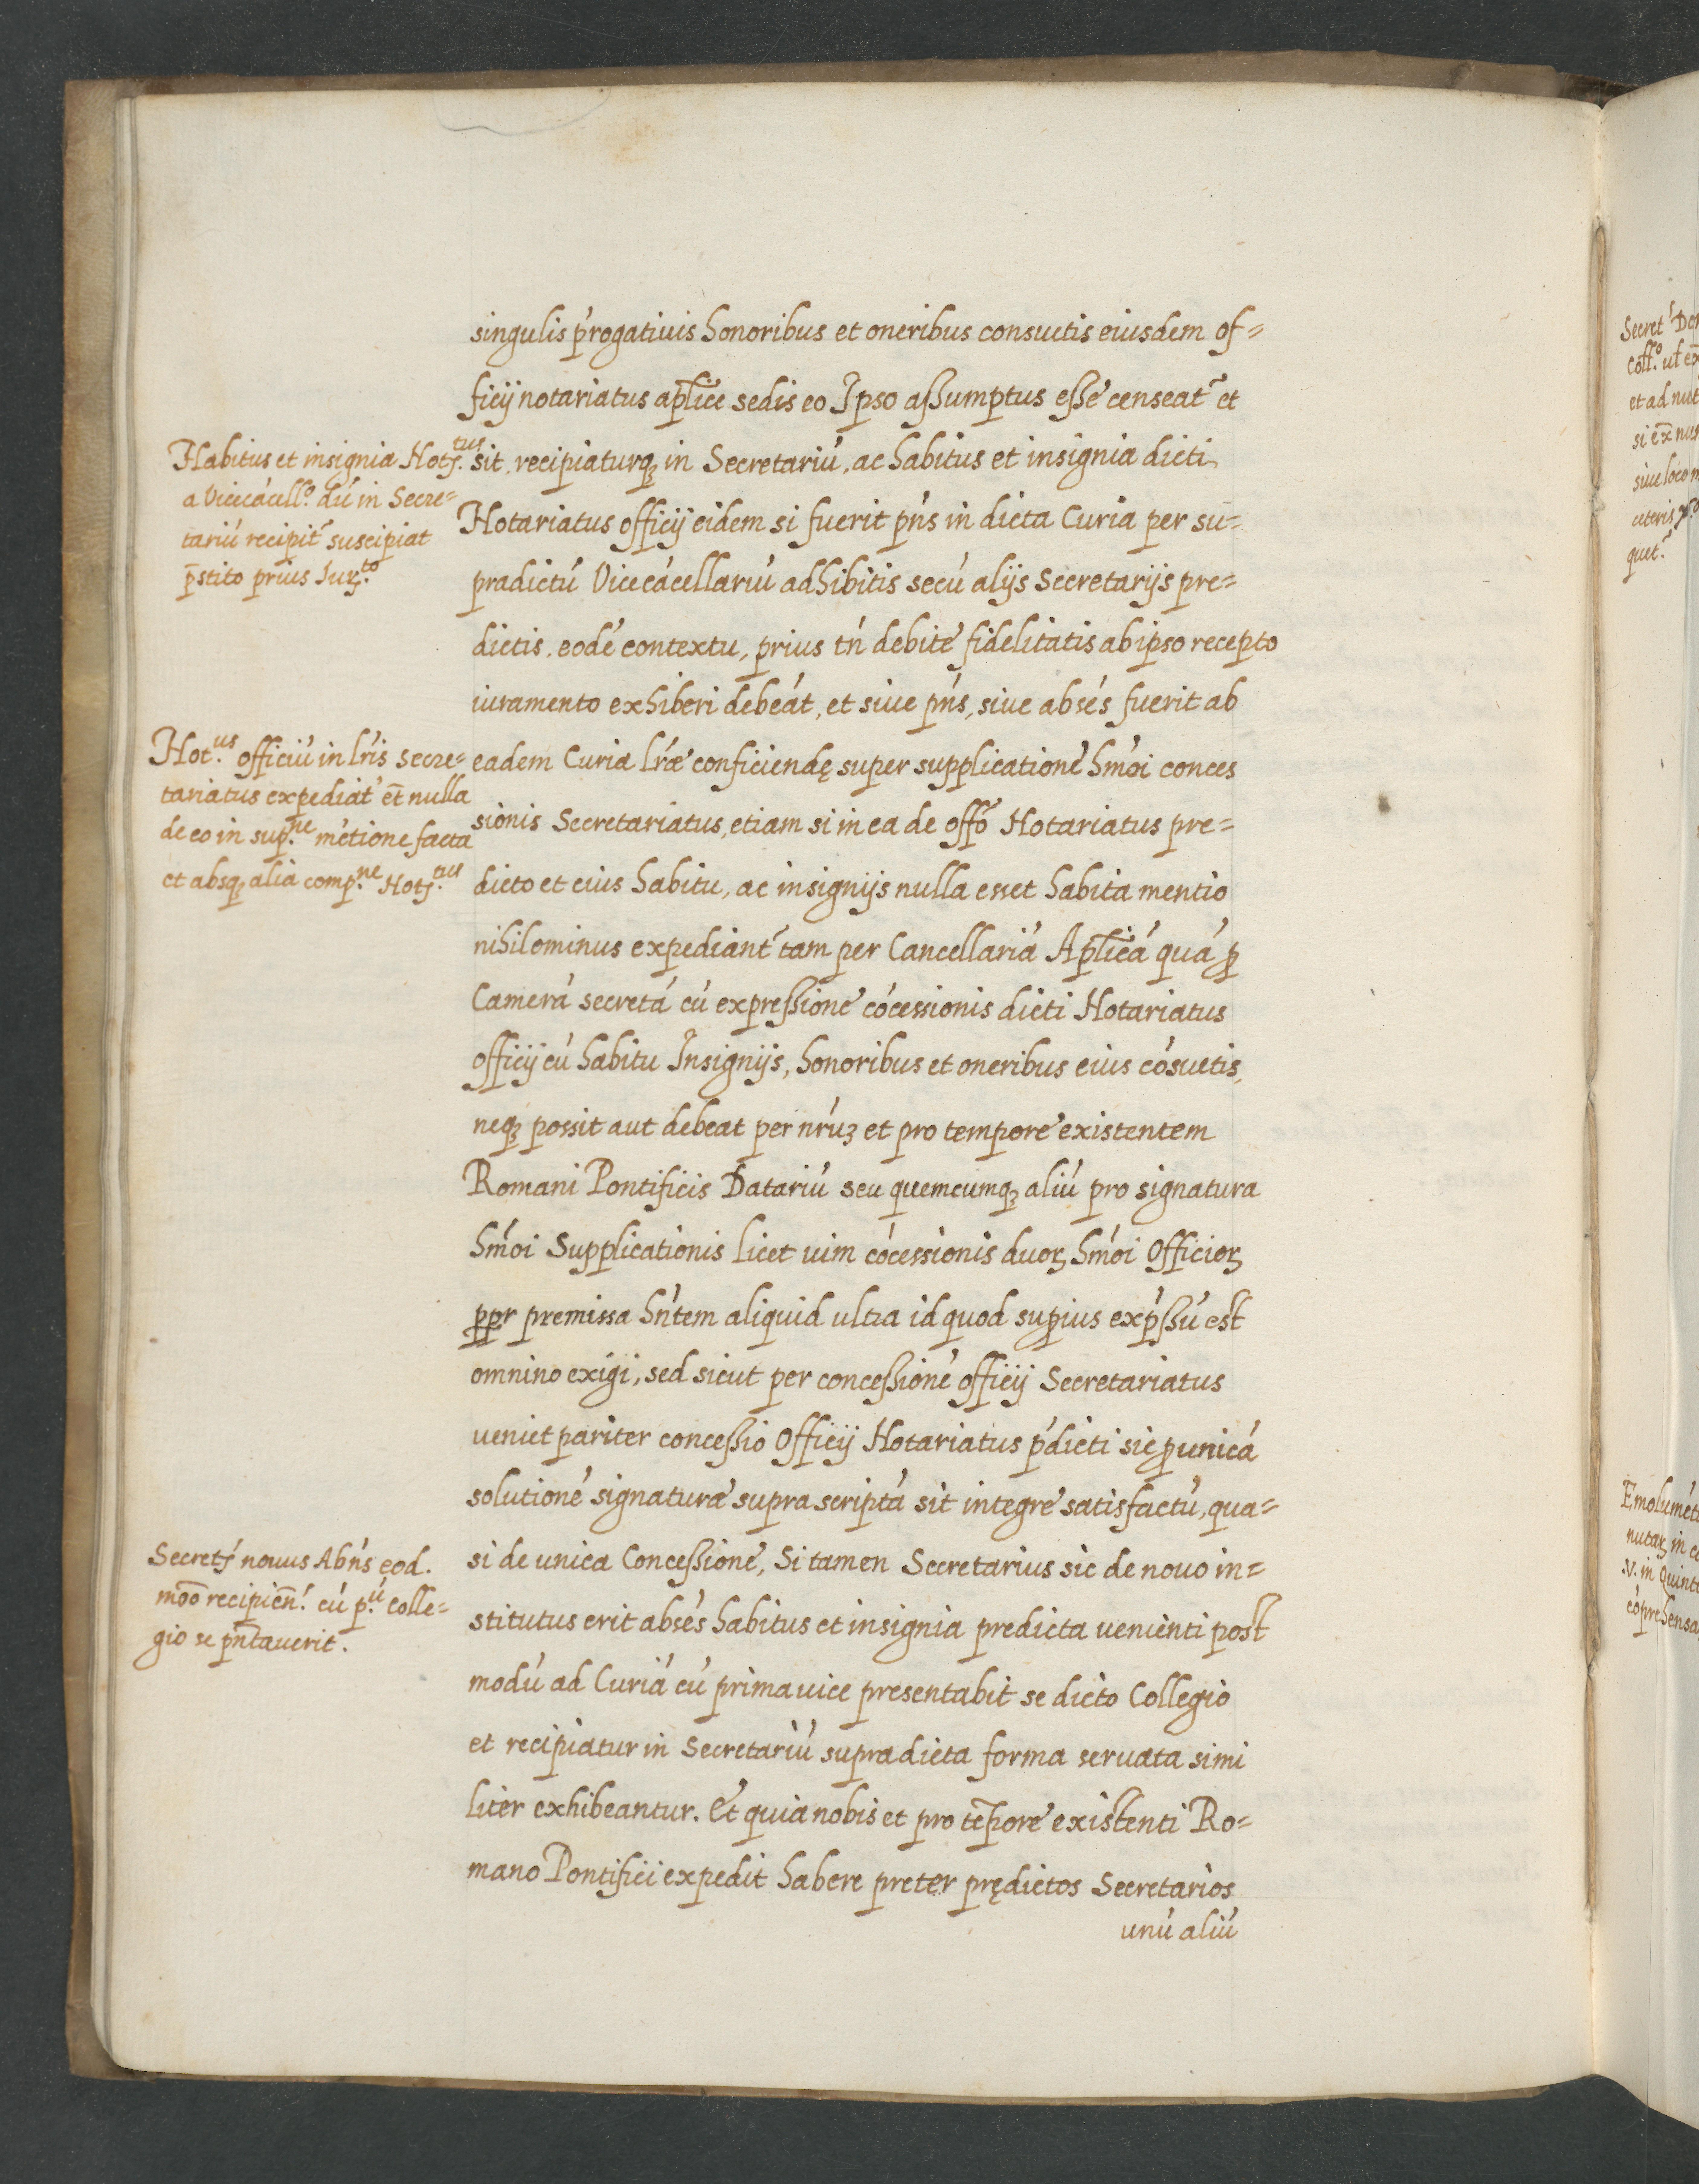 singulis p̓rogatiuis honoribus et oneribus consuetis eiusdem of=
ficij notariatus apl̄ice sedis eo Ipso assumptus esse censeat᷑ et
sit, recipiaturqȝ in Secretariú, ac habitus et insignia dicti
Notariatus officij eidem si fuerit pn̓s in dicta Curia per su=
pradictú Vicecácellariú adhibitis secú alijs Secretarijs pre=
dictis, eodé contextu, prius tń debite fidelitatis ab ipso recepto
iuramento exhiberi debeát, et siue pńs, siue absés fuerit ab
eadem Curia lŕæ conficiendę super supplicationé hmói conces
sionis Secretariatus, etiam si in ea de offō Notariatus pre=
dicto et eius habitu, ac insignijs nulla esset habita mentio
nihilominus expediant᷑ tam per Cancellariá Apl̄icá quá ꝑ
Camerá secretá cú expressione cócessionis dicti Notariatus
officij cú habitu Insignijs, honoribus et oneribus eius cósuetis,
neqȝ possit aut debeat per nŕuȝ et pro tempore existentem
Romani Pontificis Datariú seu quemcumqȝ aliú pro signatura
hmói Supplicationis licet uim cócessionis duoꝝ hmói Officioꝝ
ꝑꝑr premissa hńtem aliquid ultra id quod suꝑius exp̓ssú est
omnino exigi, sed sicut per concessioné officij Secretariatus
veniet pariter concessio Officij Notariatus p̓dicti sic ꝑ unicá
solutioné signaturæ supra scriptá sit integre satisfactú, qua=
si de unica Concessione, Si tamen Secretarius sic de nouo in=
stitutus erit absés habitus et insignia predicta venienti post
modú ad Curiá cú prima uice presentabit se dicto Collegio
et recipiatur in Secretariú supradicta forma seruata simi
liter exhibeantur. Et quia nobis et pro tēpore existenti Ro=
mano Pontifici expedit habere preter prędictos Secretarios
unú aliú
Habitus et insignia Notꝭ.tus
a Vicecácell.o dú in Secre=
tariú recipit᷑ suscipiat
p̄stito prius Iurꝭ.to
Not.us officiú in lŕis secre=
tariatus expediat᷑ et̄ nulla
de eo in sup.ne métione facta
et absqȝ alia comp.ne Notꝭ.tus
Secretꝭ nouus Abńs eod.
moō recipień. cú p.ú Colle=
gio se pn̄tauerit.
Secret
Coll.o ut ex
et ad nut
si ex̄
siue loco
ceteris
quet᷑
Emolumét
nutaꝝ in
.V. in Quint
cóprehensa